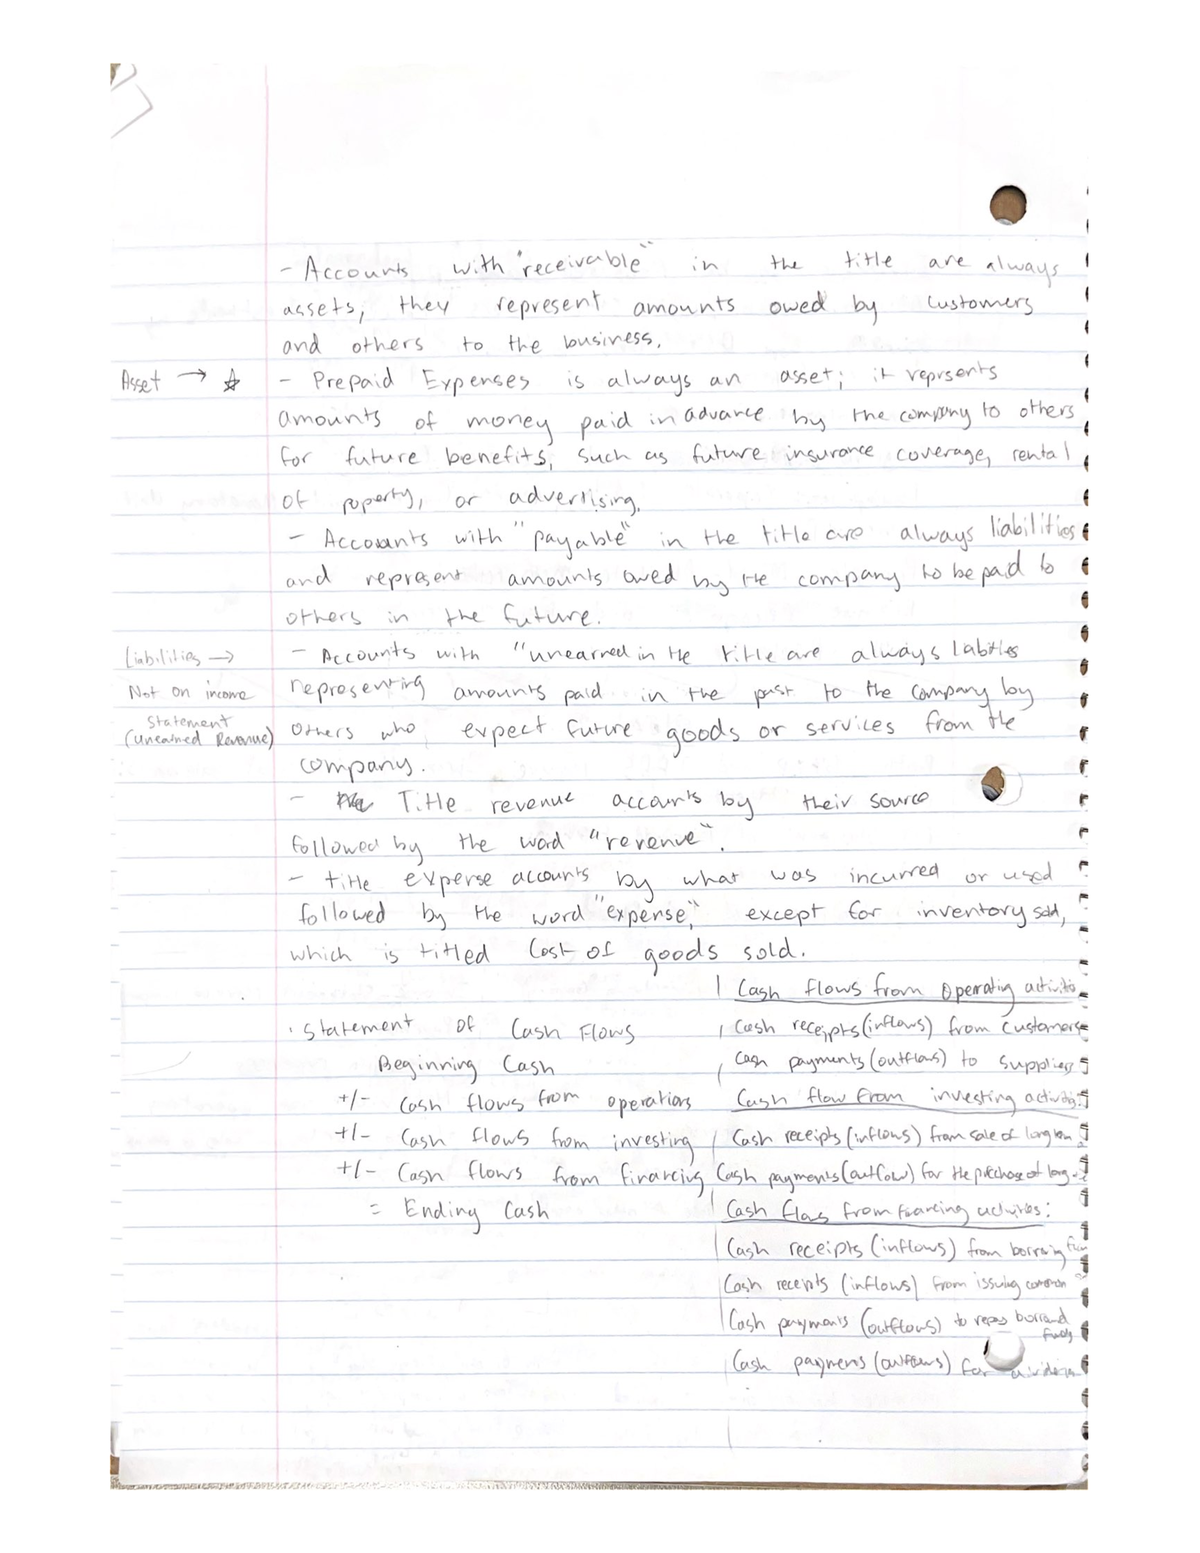 - Accounts with "receivable" in the title are always
assets; they represent amounts owed by customers
and others to the business.
Asset → ☆ - Prepaid Expenses is always an asset; it reprsents
amounts of money paid in advance by the company to others
for future benefits, such as future insurance coverage, rental
of poperty, or advertising.
- Accounts with "payable" in the title are always liabilities
and represent amounts owed by the company to be paid to
others in the future.
Liabilities → - Accounts with "unearned in the title are always labities
Not on income representing amounts paid in the past to the company by
Statement
(Unearned Revenue) others who expect future goods or services from the
company.
- Title revenue accounts by their source
followed by the word "revenue".
- title expense accounts by what was incurred or used
followed by the word "expense," except for inventory sold,
which is titled Cost of goods sold.
· Statement of Cash Flows
Beginning Cash
+/- Cash flows from operations
+/- Cash flows from investing
+/- Cash flows from financing
= Ending Cash
Cash flows from Operating
Cash receipts (inflows) from customers
Cash payments (outflows) to suppliers
Cash flow from investing
Cash receipts (inflows) from sale of long
Cash payments (outflow) for the purchase of long
Cash flows from financing activities:
Cash receipts (inflows) from borrowing
Cash receipts (inflows) from issuing common
Cash payments (outflows) to repay
Cash payments (outflows) for